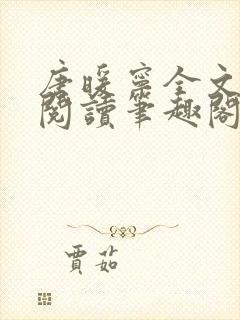 唐暖寧全文
閱讀筆趣閣
賈茹